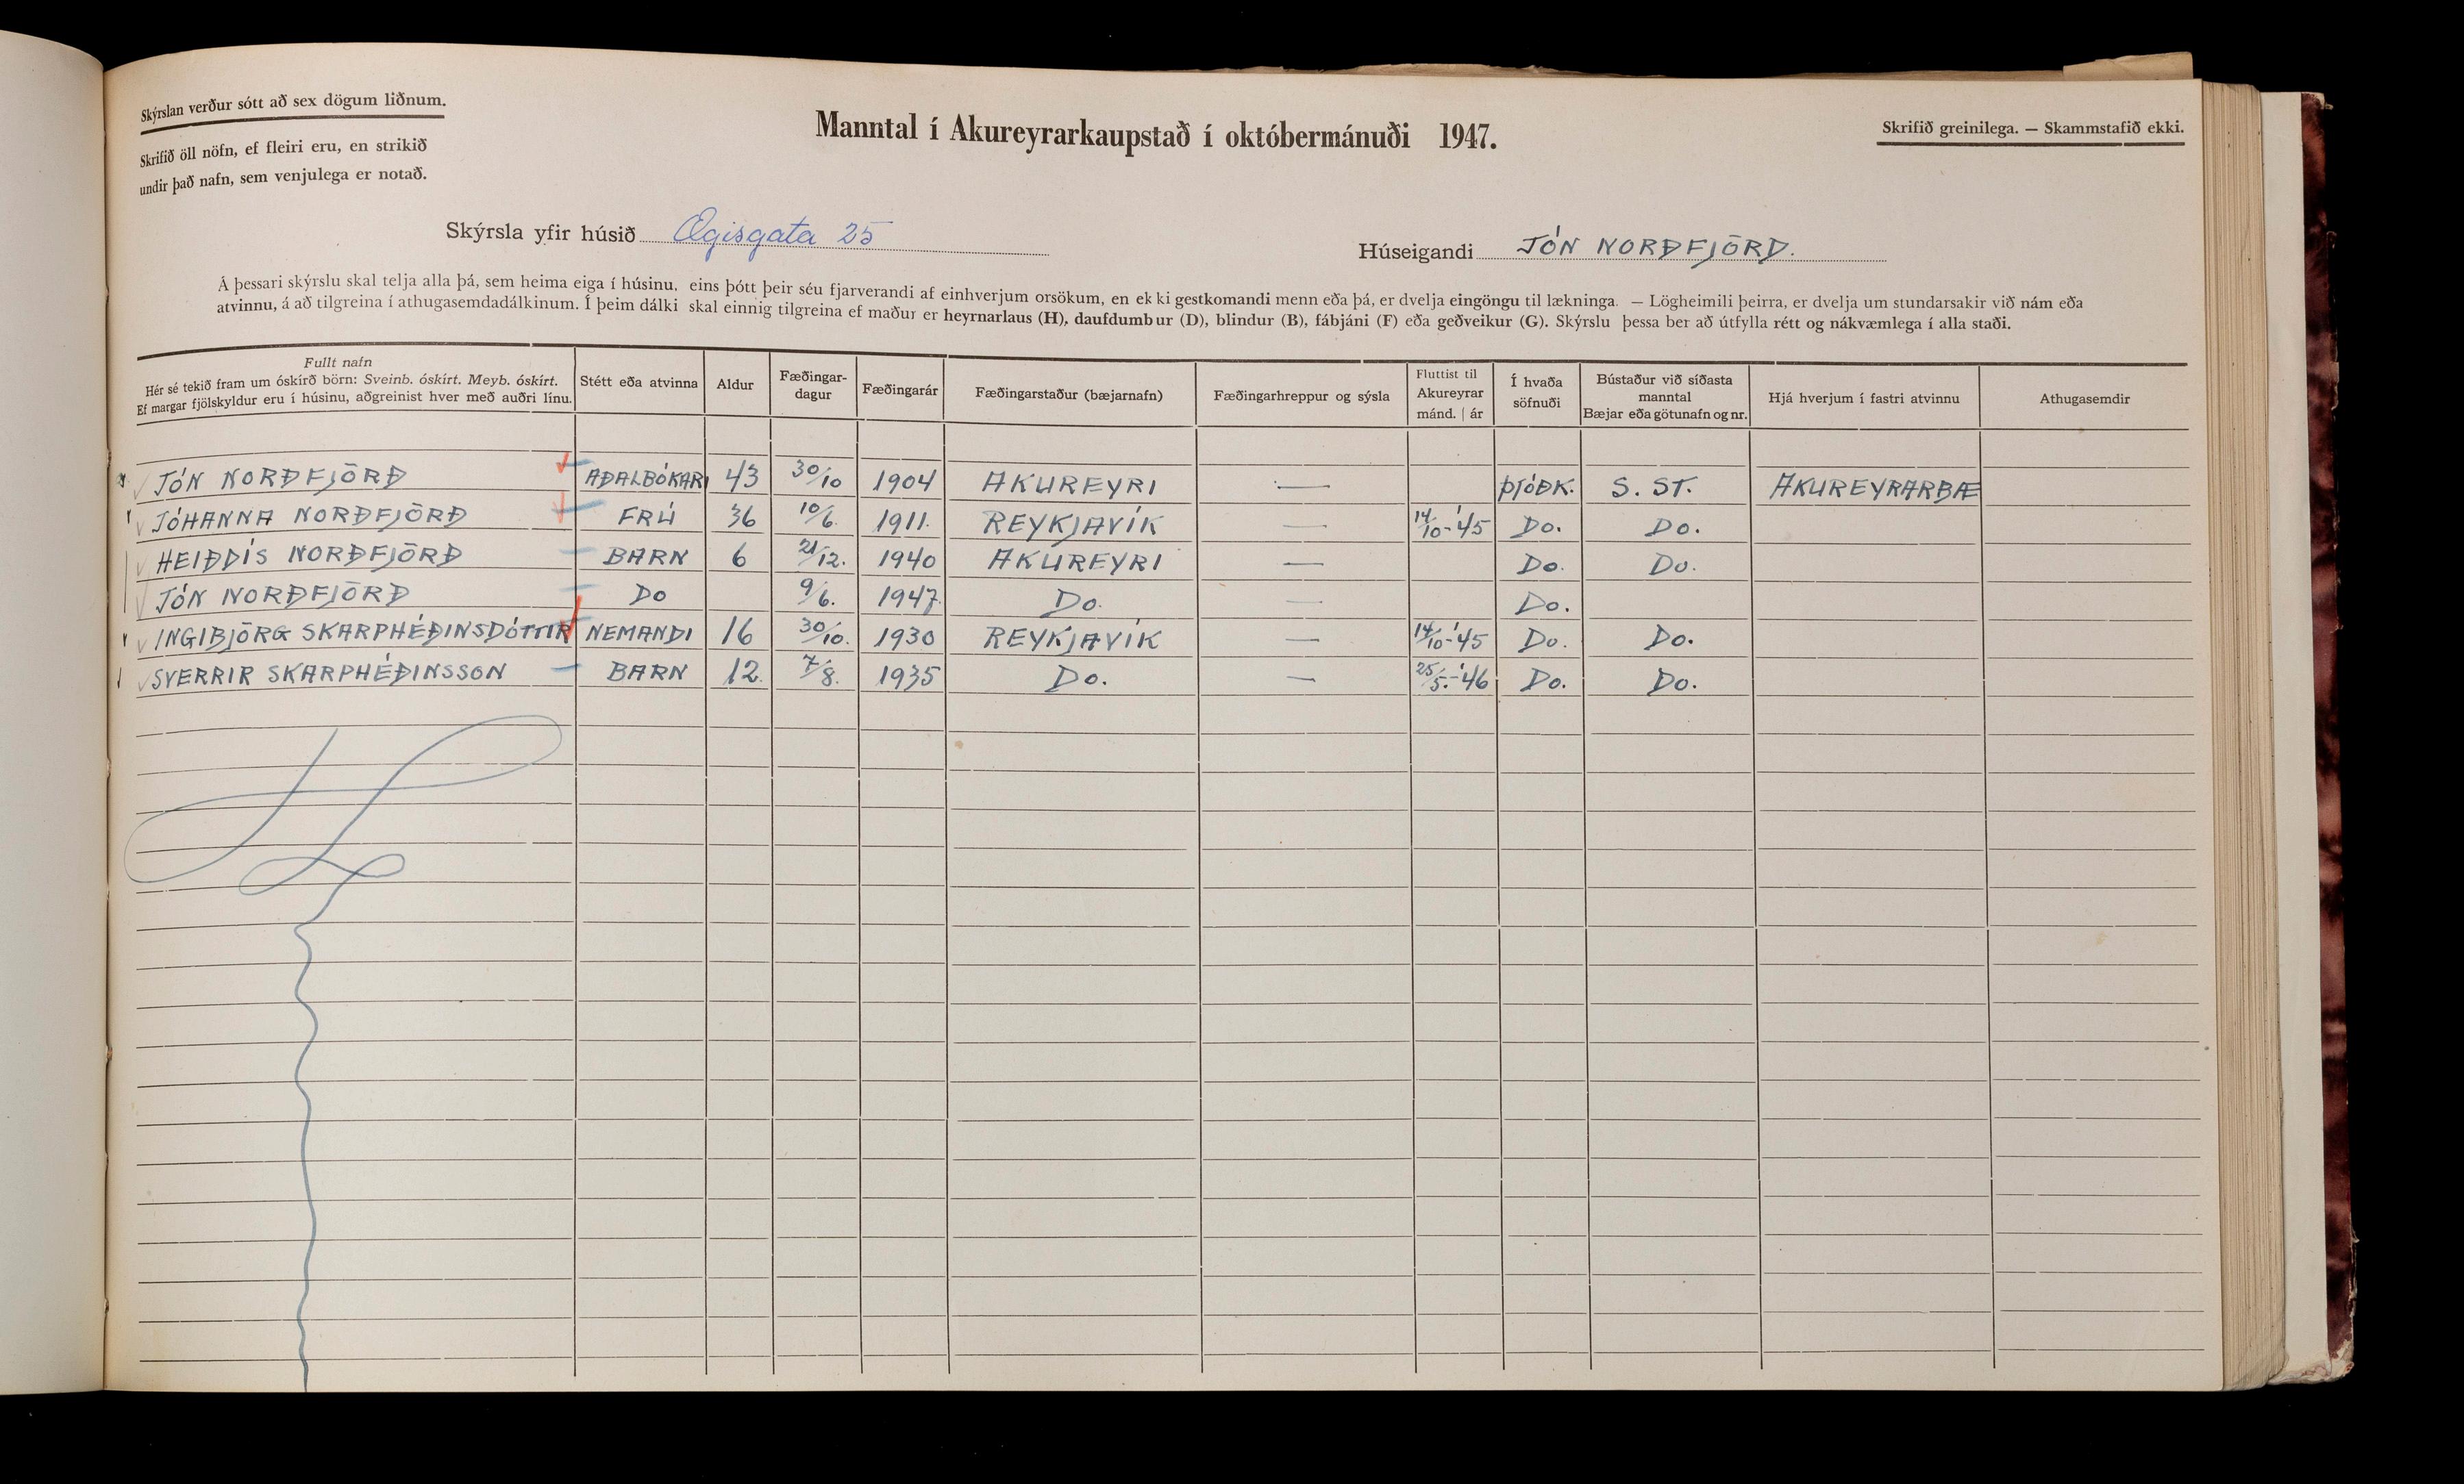 Skýrslan verður sótt að sex dögum liðnum.
Skrifið öll nöfn, ef fleiri eru, en strikið
undir það nafn, sem venjulega er notað.
Manntal í Akureyrarkaupstað í októbermánuði 1947.
Skrifið greinilega. — Skammstafið ekki.
Skýrsla yfir húsið Ægisgata 25
Húseigandi JÓN NORÐFJÖRÐ.
Á þessari skýrslu skal telja alla þá, sem heima eiga í húsinu, eins þótt þeir séu fjarverandi af einhverjum orsökum, en ekki gestkomandi menn eða þá, er dvelja eingöngu til lækninga. — Lögheimili þeirra, er dvelja um stundarsakir við nám eða
atvinnu, á að tilgreina í athugasemdadálkinum. Í þeim dálki skal einnig tilgreina ef maður er heyrnarlaus (H), daufdumbur (D), blindur (B), fábjáni (F) eða geðveikur (G). Skýrslu þessa ber að útfylla rétt og nákvæmlega í alla staði.
Fullt nafn
Hér sé tekið fram um óskírð börn: Sveinb. óskírt. Meyb. óskírt.
Ef margar fjölskyldur eru í húsinu, aðgreinist hver með auðri línu.
Stétt eða atvinna
Aldur
Fæðingar-
dagur
Fæðingarár
Fæðingarstaður (bæjarnafn)
Fæðingarhreppur og sýsla
Fluttist til
Akureyrar
mánd. | ár
Í hvaða
söfnuði
Bústaður við síðasta
manntal
Bæjar eða götunafn og nr.
Hjá hverjum í fastri atvinnu
Athugasemdir
JÓN NORÐFJÖRÐ AÐALBÓKARI 43 30/10 1904 AKUREYRI — ÞJÓÐK. S. ST. AKUREYRARBÆ
JÓHANNA NORÐFJÖRÐ FRÚ 36 10/6. 1911. REYKJAVÍK — 14/10-'45 Do. Do.
HEIÐDÍS NORÐFJÖRÐ BARN 6 21/12. 1940 AKUREYRI — Do. Do.
JÓN NORÐFJÖRÐ Do 9/6. 1947. Do. — Do.
INGIBJÖRG SKARPHÉÐINSDÓTTIR NEMANDI 16 30/10. 1930 REYKJAVÍK — 14/10-'45 Do. Do.
SVERRIR SKARPHÉÐINSSON BARN 12. 7/8. 1935 Do. — 25/5.-'46 Do. Do.